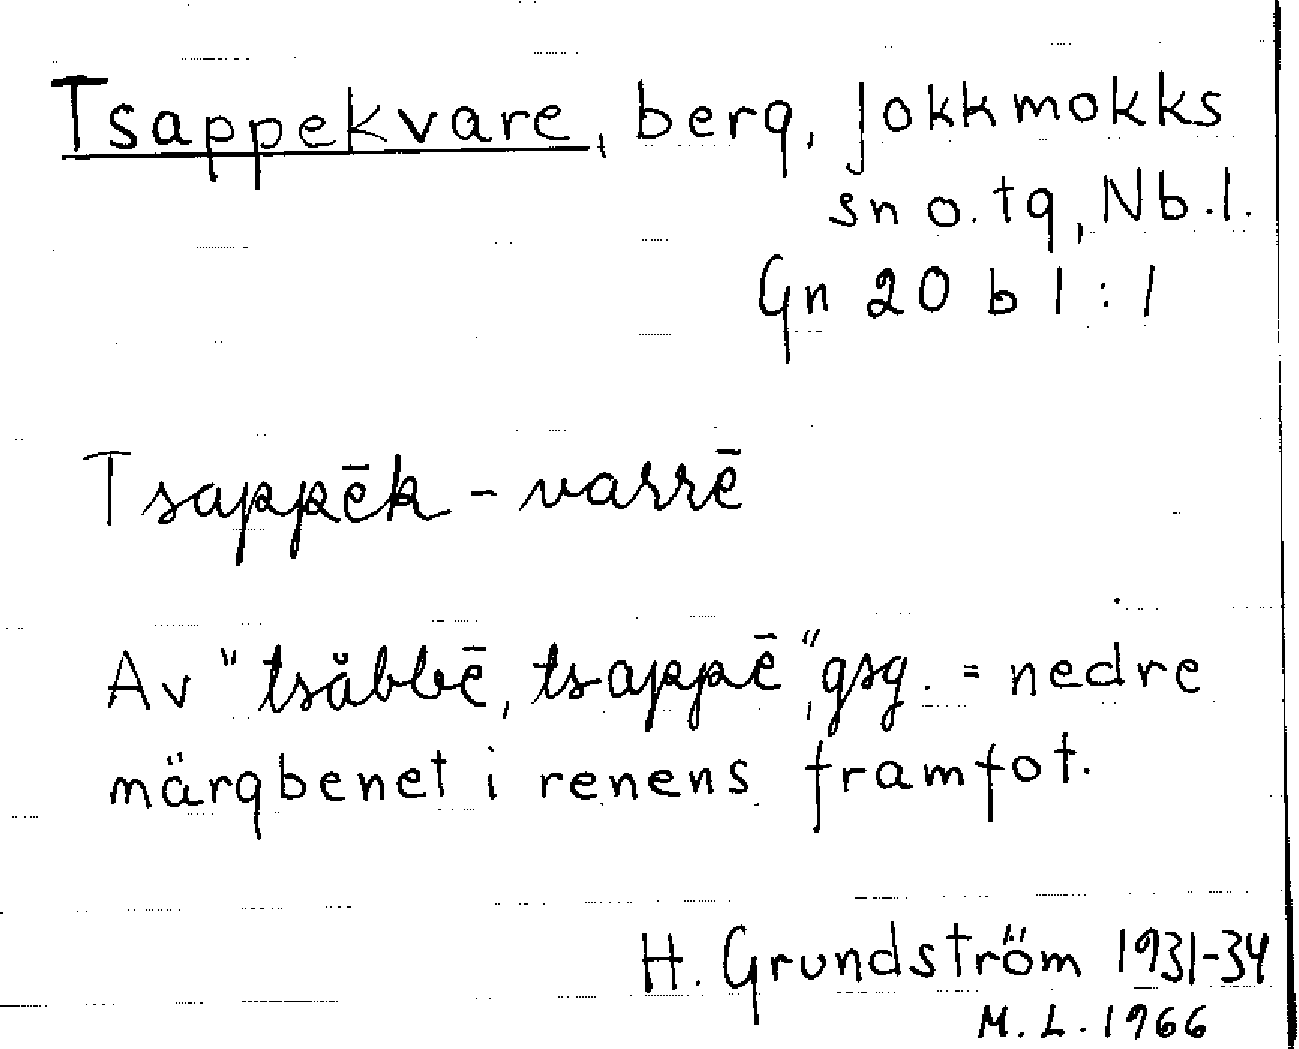 Tsappekvare, berg, Jokkmokks
sn o. tg, Nb. l.
Gn 20 b l : 1
Tsappēk - varrē
Av "tsåbbē, tsappē", gsg. = nedre
märgbenet i renens framfot.
H. Grundström 1931-34
M. L. 1966